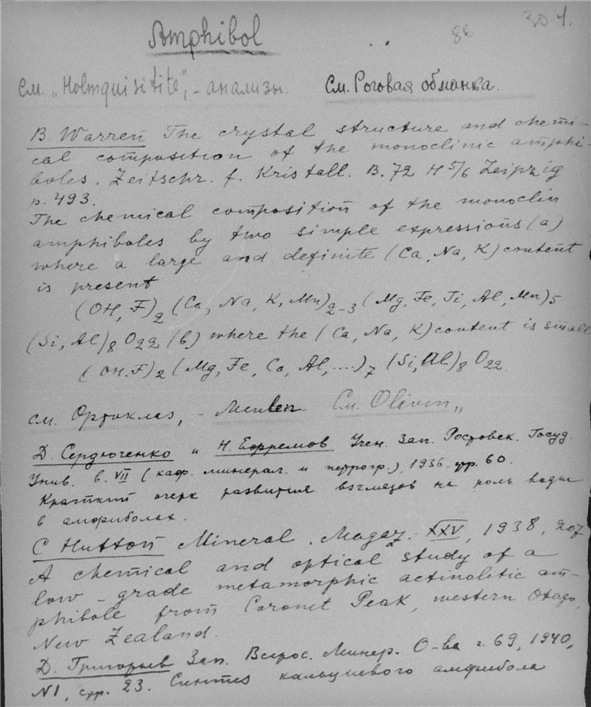 Amphibol
86
301.
см. "Holmquisitite", - анализы. См. Роговая обманка.
B. Warren The crystal structure and chemi-
cal composition of the monoclinic amphi-
boles. Zeitschr. f. Kristall. B. 72 H 5/6 Leipzig
p. 493.
The chemical composition of the monoclin
amphiboles by two simple expressions (a)
where a large and definite (Ca, Na, K) content
is present
(OH, F)2 (Ca, Na, K, Mn)2-3 (Mg, Fe, Ti, Al, Mn)5
(Si, Al)8 O22 (b) where the (Ca, Na, K) content is small
(OH.F)2 (Mg, Fe, Ca, Al, ...)7 (Si, Al)8 O22
см. Ортоклаз, - См. Olivin"
Д. Сердюченко и Н. Ефремов Учен. Зап. Ростовск. Госуд.
Унив. в. VII (каф. минерал. и петрогр.), 1936. стр. 60.
Краткий очерк развития взглядов на роль воды
в амфиболах.
C Hutton Mineral. Magaz. XXV, 1938, 207
A chemical and optical study of a
low-grade metamorphic actinolitic am-
phibole from Coronet Peak, western Otago,
New Zealand.
Д. Григорьев Зап. Всерос. Минер. О-ва г. 69, 1940,
N1, стр. 23. Синтез кальциевого амфибола